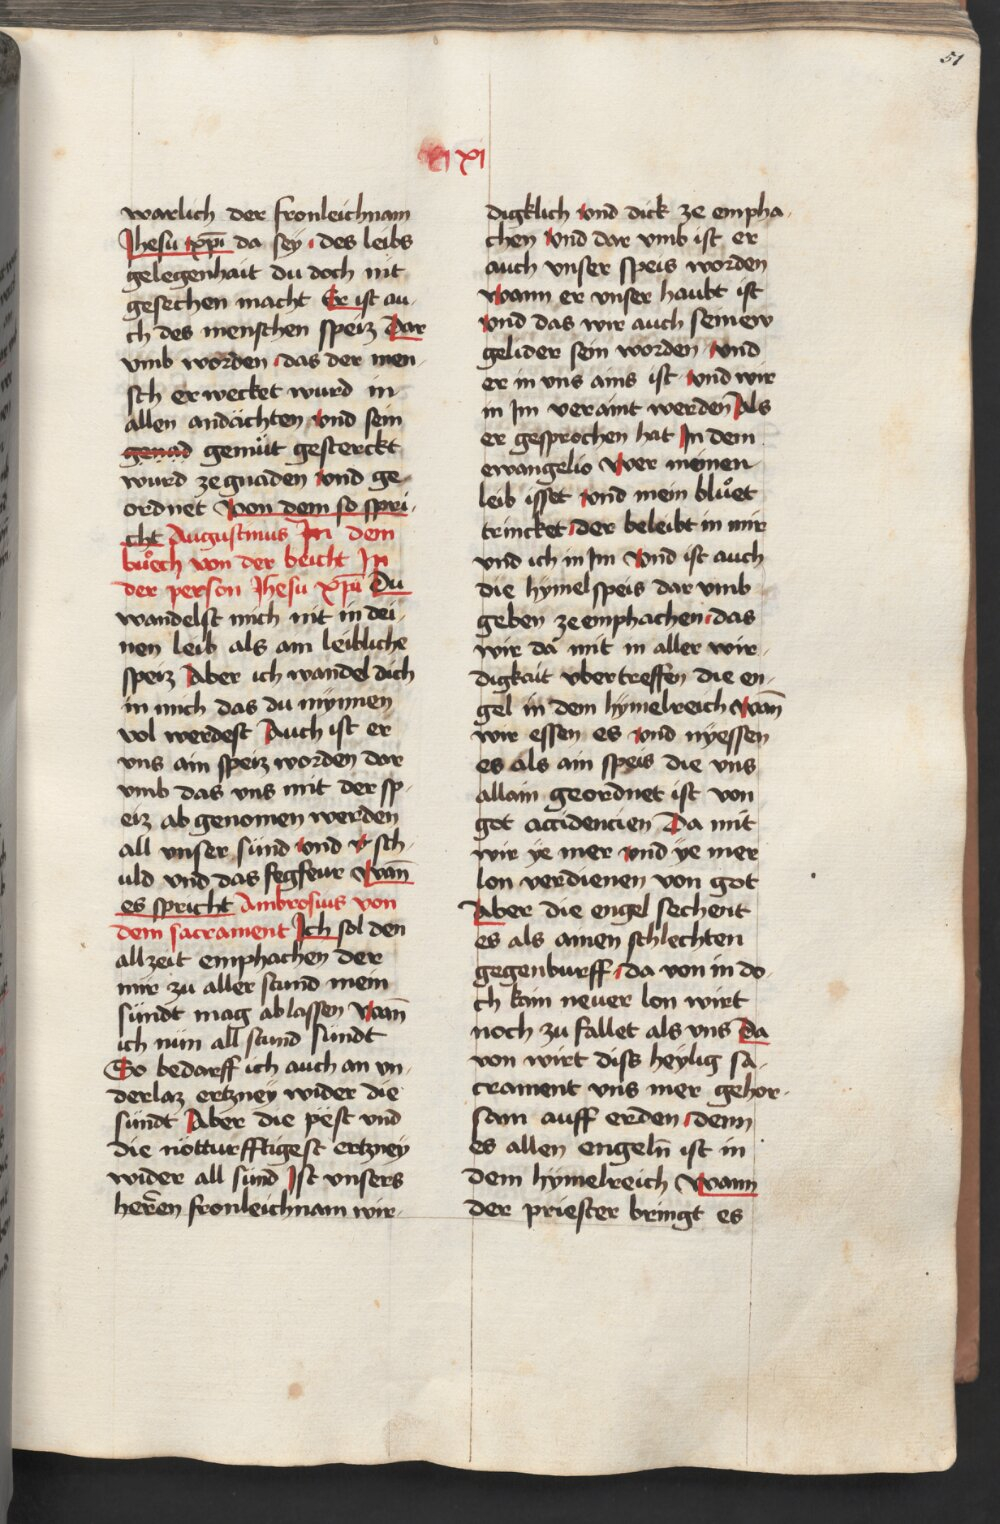 51
xi
warlich der fronleichnam
Jhesu xp̄i da sey des leibs
gelegenhait du doch nit
gesechen macht Er ist au-
ch des menschen speiz Dar
vmb worden das der men-
sch erwecket wurd in
allen andächten vnd sein
genad gemüt gesterckt
wurd ze gnaden vnd ge-
ordnet Von dem so spri-
cht Augustinus In dem
buͦch von der beicht In
der person Jhesu xp̄i Du
wandelst mich nit in dei-
nen leib als am leibliche
speiz Aber ich wandel dich
in mich das du mynnen
vol werdest Auch ist er
vns ain speiz worden dar
vmb das vns mit der sp-
eiz ab genomen werden
all vnser sünd vnd v̾ sch-
uld vnd das fegfeur Wan̄
es spricht Ambrosius von
dem sacrament Ich sol den
allzeit emphachen der
mir zu aller stund mein
sündt mag ablassen Wan̄
ich nün all stund sündt
So bedarff ich auch an vn-
derlaz ertzney wider die
sündt Aber die pest vnd
die notturfftigest ertzney
wider all sünd Ist vnsers
herren fronleichnam wir-
digklich vnd dick ze empha-
chen Vnd dar vmb ist er
auch vnser speis worden
Wann er vnser haubt ist
Vnd das wir auch seinew
gelider sein worden vnd
er in vns ains ist vnd wir
in Im veraint werden Als
er gesprochen hat In dem
ewangelio Wer meinen
leib isset vnd mein bluͦet
trincket der beleibt in mir
vnd ich in Im Vnd ist auch
die hymel speis dar vmb
geben ze emphachen das
wir da mit in aller wir-
digkait vbertreffen die en-
gel in dem hymelreich Wan̄
wir essen es vnd nyessen
es als ain speis die vns
allain geordnet ist von
got accidencien Da mit
wir ye mer vnd ye mer
lon verdienen von got
Aber die engel sechent
es als ainen schlechten
gegenburff da von in do-
ch kain neuer lon wirt
noch zu fallet als vns Da
von wirt diss heylig sa-
crament vns mer gehor-
sam auff erden denn
es allen engeln̄ ist in
dem hymelreich Wann
der priester bringt es